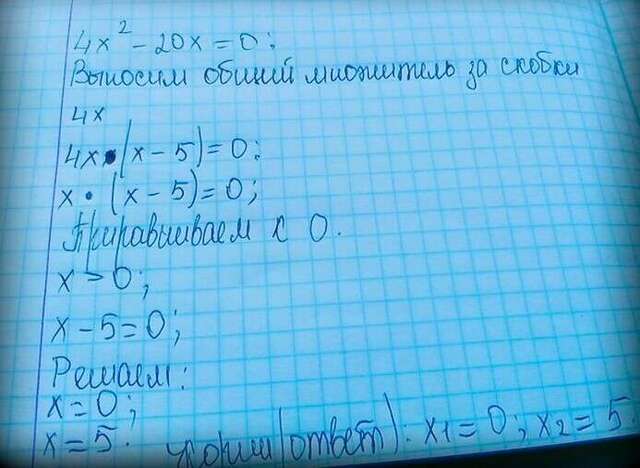 4x² - 20x = 0;
Выносим общий множитель за скобки
4x
4x • (x - 5) = 0:
x • (x - 5) = 0;
Приравниваем к 0.
x = 0;
x - 5 = 0;
Решаем:
x = 0;
x = 5. корни (ответ): x1 = 0; x2 = 5.